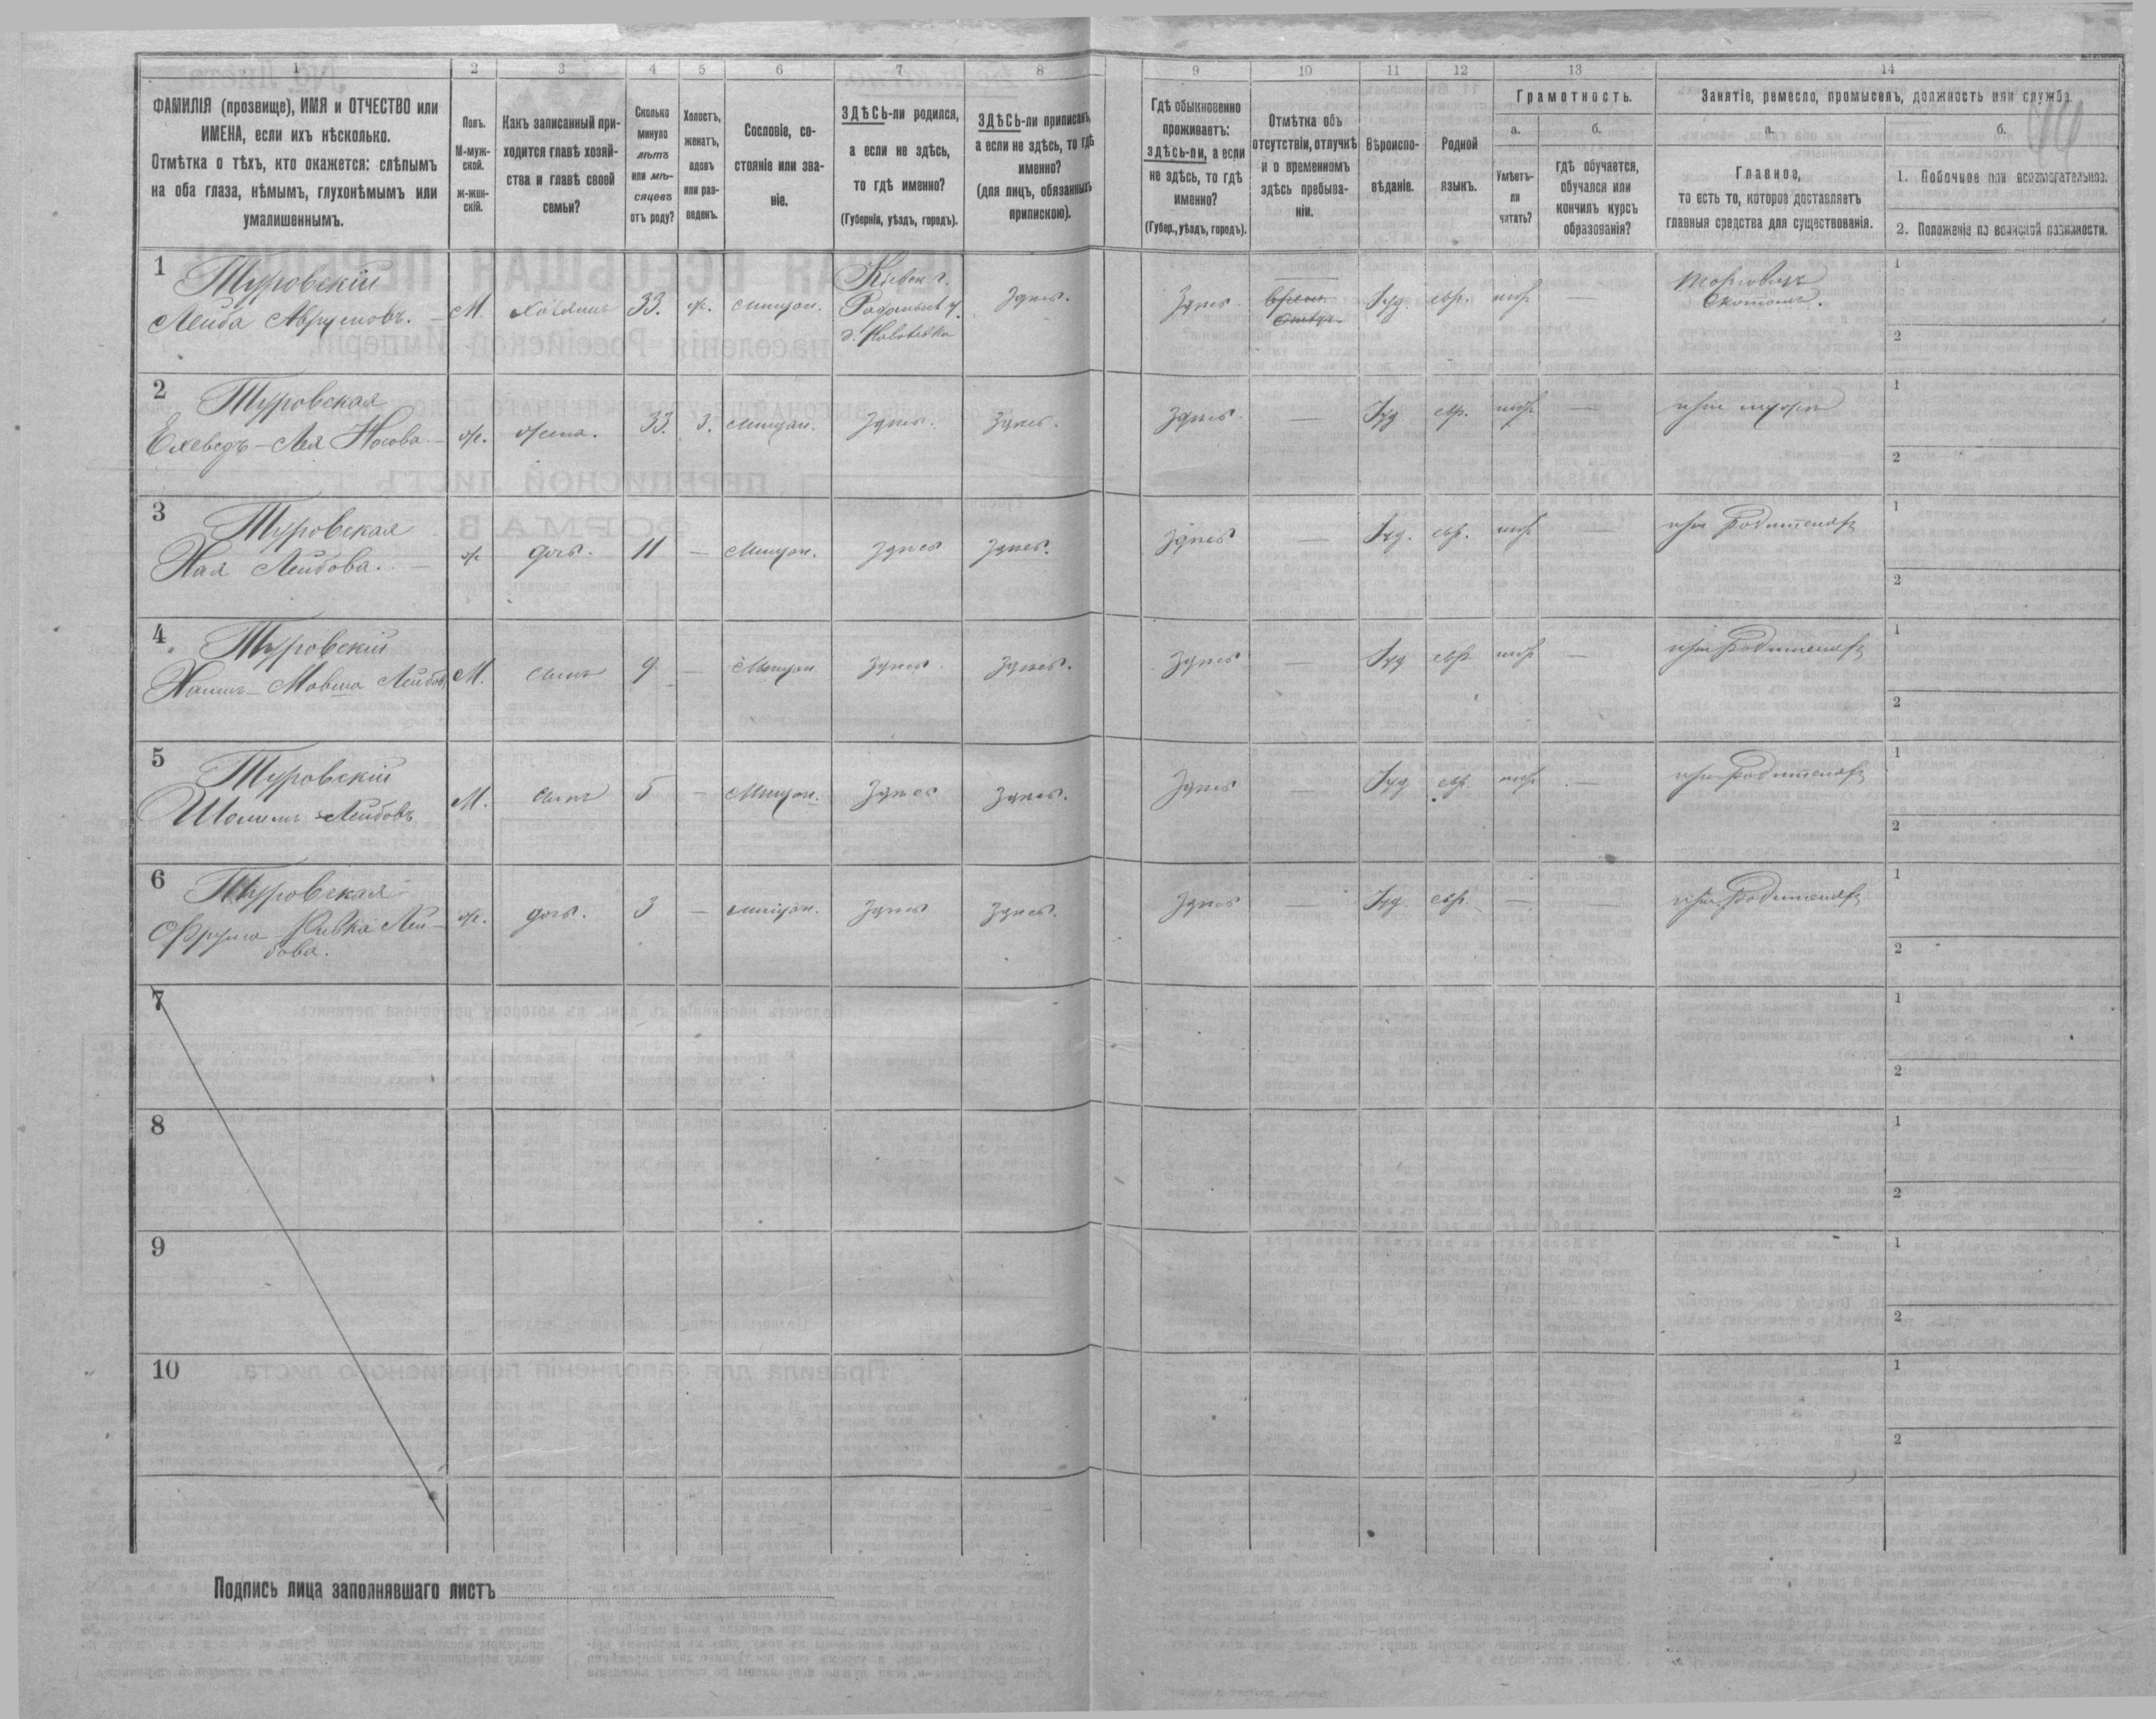 1 2 3 4 5 6 7 8 9 10 11 12 13 14
ФАМИЛІЯ (прозвище), ИМЯ и ОТЧЕСТВО или
ИМЕНА, если ихъ нѣсколько.
Отмѣтка о тѣхъ, кто окажется: слѣпымъ
на оба глаза, нѣмымъ, глухонѣмымъ или
умалишеннымъ.
Полъ.
М-муж-
ской.
ж-жен-
скій.
Какъ записанный при-
ходится главѣ хозяй-
ства и главѣ своей
семьи?
Сколько
минуло
лѣтъ
или мѣ-
сяцевъ
отъ роду?
Холостъ,
женатъ,
вдовъ
или раз-
веденъ.
Сословіе, со-
стояніе или зва-
ніе.
ЗДѢСЬ-ли родился,
а если не здѣсь,
то гдѣ именно?
(Губернія, уѣздъ, городъ).
ЗДѢСЬ-ли приписанъ,
а если не здѣсь, то гдѣ
именно?
(для лицъ, обязанныхъ
припискою).
Гдѣ обыкновенно
проживаетъ:
здѣсь-ли, а если
не здѣсь, то гдѣ
именно?
(Губер., уѣздъ, городъ).
Отмѣтка объ
отсутствіи, отлучкѣ
и о временномъ
здѣсь пребыва-
ніи.
Вѣроиспо-
вѣданіе.
Родной
языкъ.
Грамотность.
а.
Умѣетъ-
ли
читать?
б.
гдѣ обучается,
обучался или
кончилъ курсъ
образованія?
Занятіе, ремесло, промыселъ, должность или служба.
а.
Главное,
то есть то, которое доставляетъ
главныя средства для существованія.
б.
1. Побочное или вспомогательное.
2. Положеніе по воинской повинности.
1 Туровскій
Лейба Аврумовъ. М. хозяинъ 33. ж. мищан. Кіевск г. здѣсь. здѣсь. Іуд. евр. —
д.
1
2
2 Туровская
Ехеведъ-ЛеяНосова ж. жена. 33. з. мищан. здѣсь. здѣсь. здѣсь. — Іуд евр. — при мужѣ
1
2
3 Туровская
Хая Лейбова. ж дочь. 11 — мищан. здѣсь здѣсь. здѣсь — Іуд. евр. — при родителяхъ
1
2
4 Туровскій
Мовша Лейбов М. сынъ 9 — мищан здѣсь здѣсь. здѣсь — Іуд евр. — при родителяхъ
1
2
5 Туровскій
Лейбовъ М. сынъ 5 — мищан. здѣсь здѣсь. здѣсь — Іуд евр. — при родителяхъ
1
2
6 Туровская
Фрума-Ривка Лей-
бова. ж. дочь. 3 — мищан. здѣсь здѣсь. здѣсь — Іуд. евр. — — при родителяхъ
1
2
7
1
2
8
1
2
9
1
2
10
1
2
Подпись лица заполнявшаго листъ